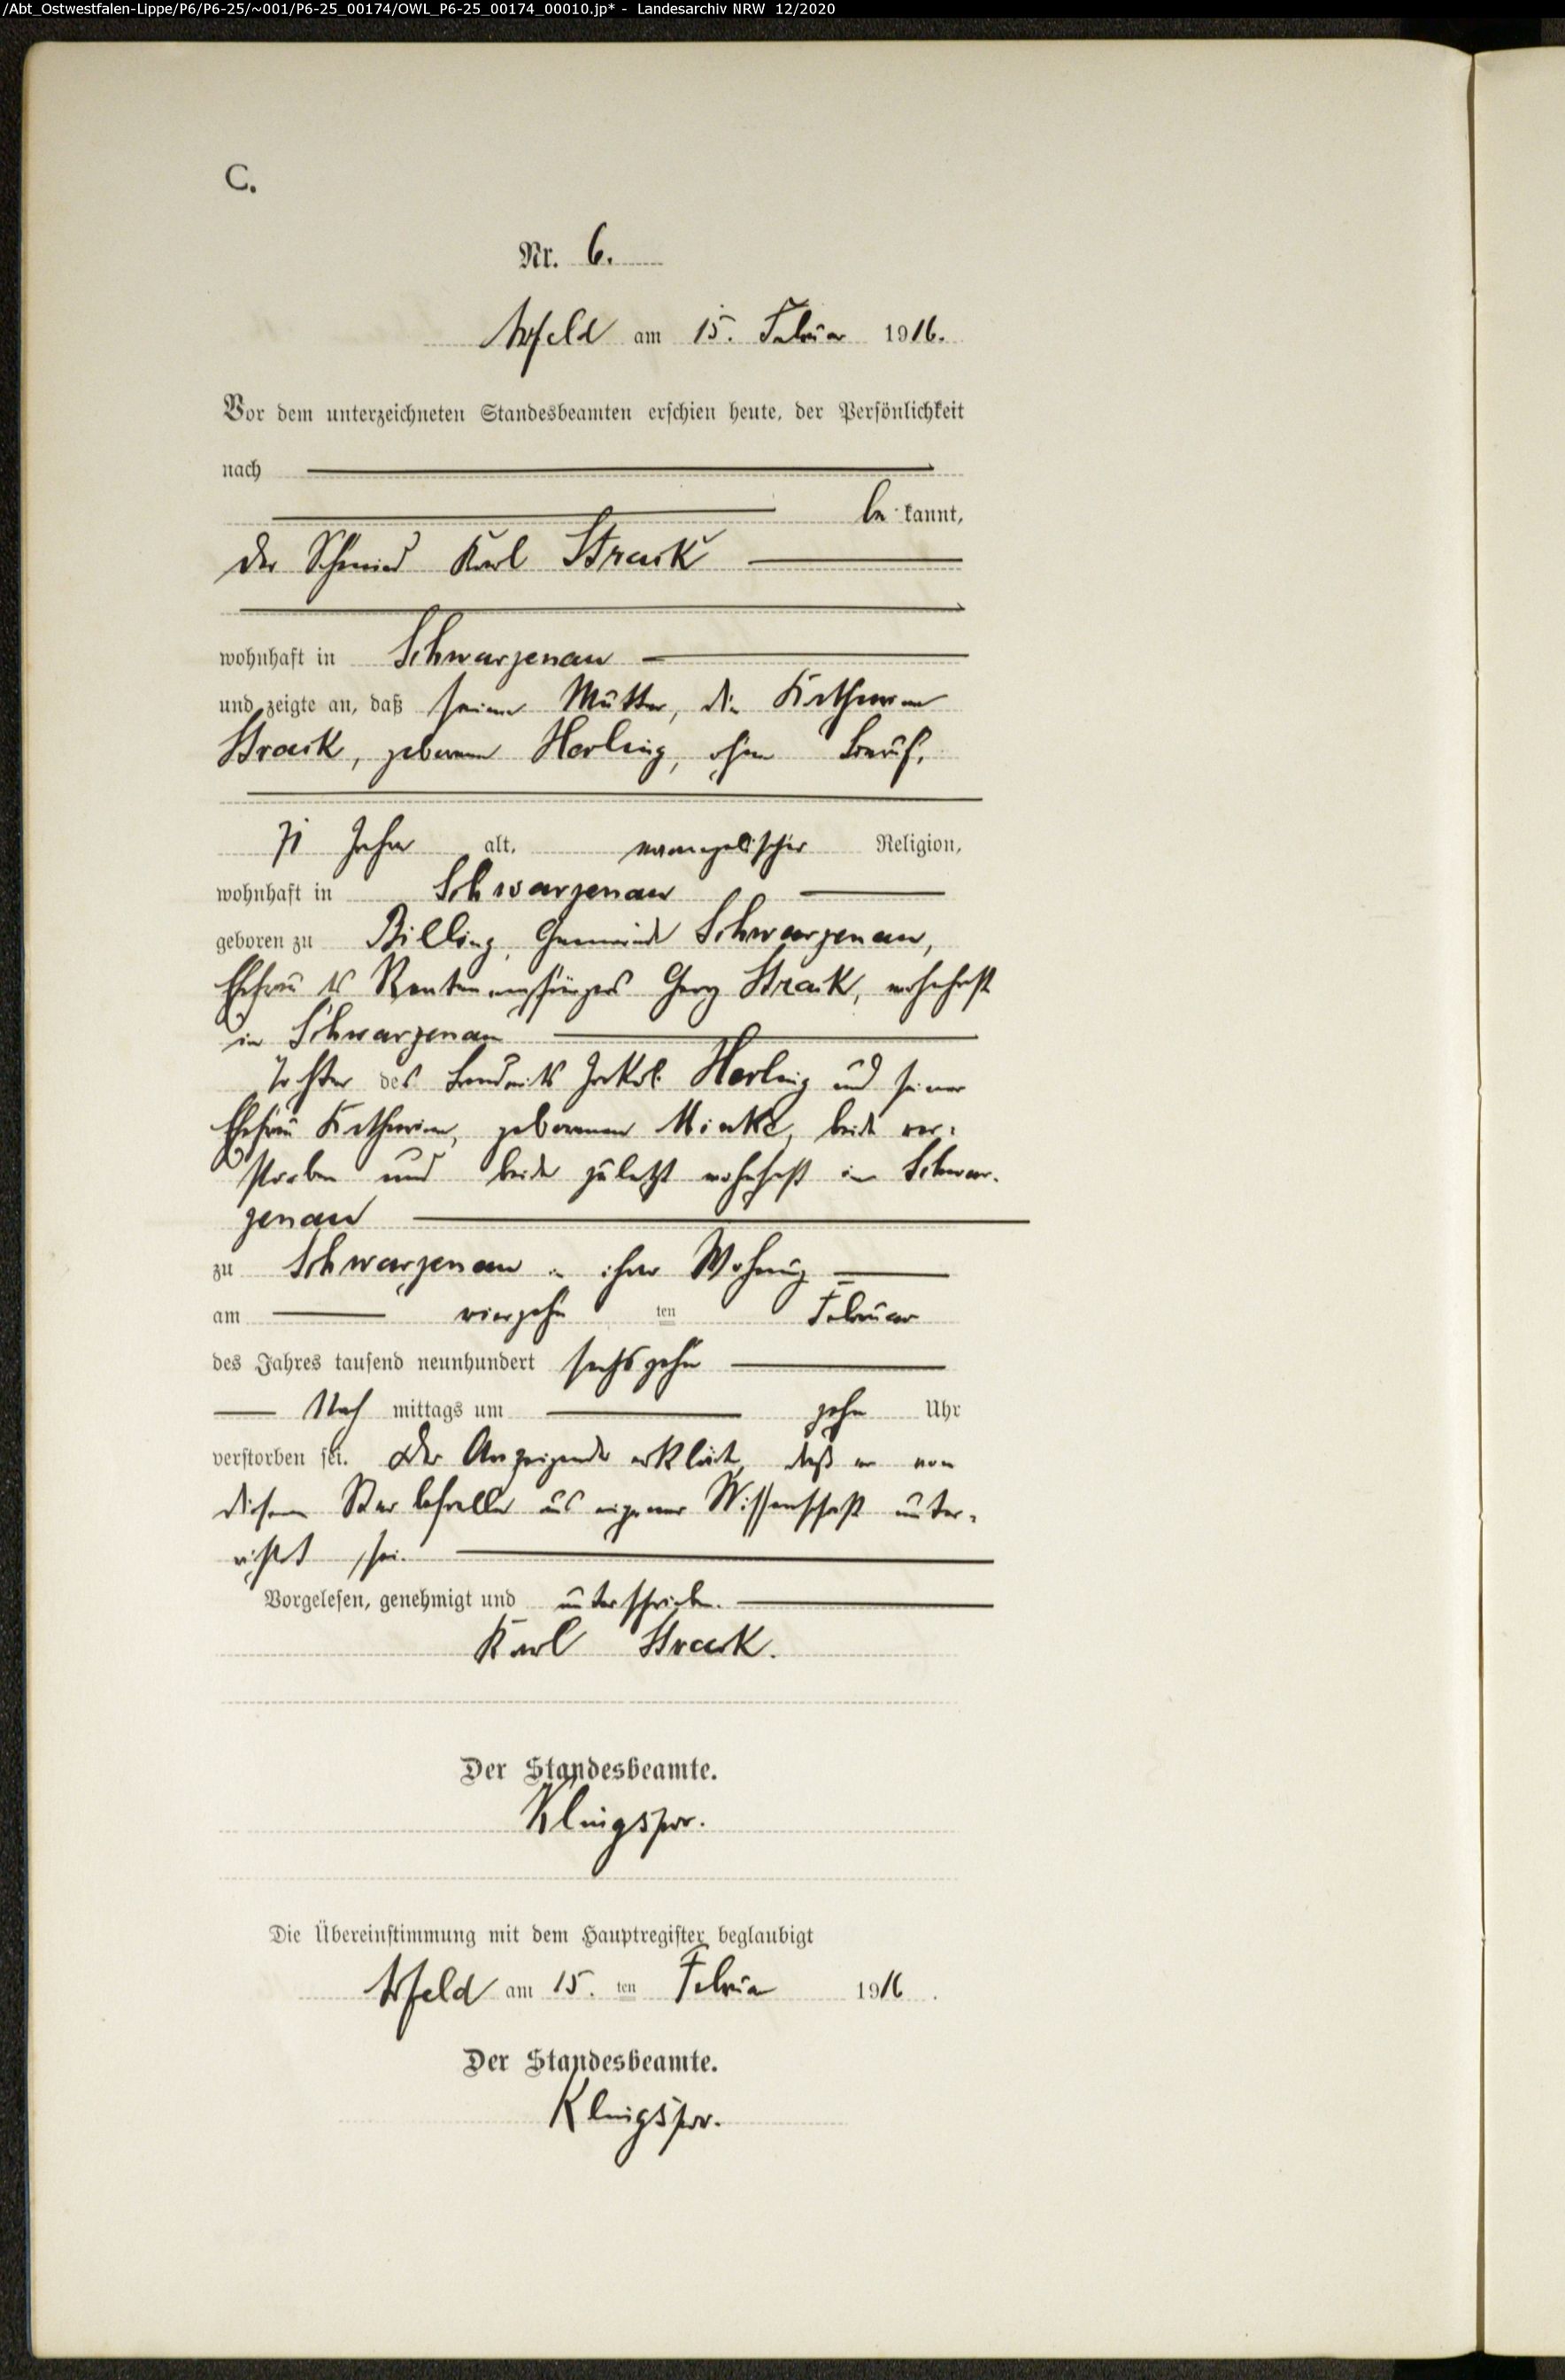 /Abt_Ostwestfalen-Lippe/P6/P6-25/~001/P6-25_00174/OWL_P6-25_00174_00010.jp* - Landesarchiv NRW 12/2020
C.
Nr. 6.
Arfeld am 15. Februar 1916.
Vor dem unterzeichneten Standesbeamten erschien heute, der Persönlichkeit
nach
be kannt,
der Schmied Karl Strack
wohnhaft in Schwarzenau
und zeigte an, daß seine Mutter, die Katharina
Strack, geborene Horling, ohne Beruf,
71 Jahre alt, evangelischer Religion,
wohnhaft in Schwarzenau
geboren zu Billing, Gemeinde Schwarzenau,
Ehefrau des Rentenempfängers Georg Strack, wohnhaft
in Schwarzenau
Tochter des Landwirts Jakob Horling und seiner
Ehefrau Katharina, geborenen beide ver-
storben und beide zuletzt wohnhaft in Schwar-
zenau
zu Schwarzenau in ihrer Wohnung
am vierzehn ten Februar
des Jahres tausend neunhundert sechszehn
Nach mittags um zehn Uhr
verstorben sei. Der Anzeigende erklärte, daß er von
diesem Sterbefalle aus eigener Wissenschaft unter-
richtet sei.
Vorgelesen, genehmigt und unterschrieben.
Karl Strack.
Der Standesbeamte.
Klingspor.
Die Übereinstimmung mit dem Hauptregister beglaubigt
Arfeld am 15. ten Februar 1916.
Der Standesbeamte.
Klingspor.